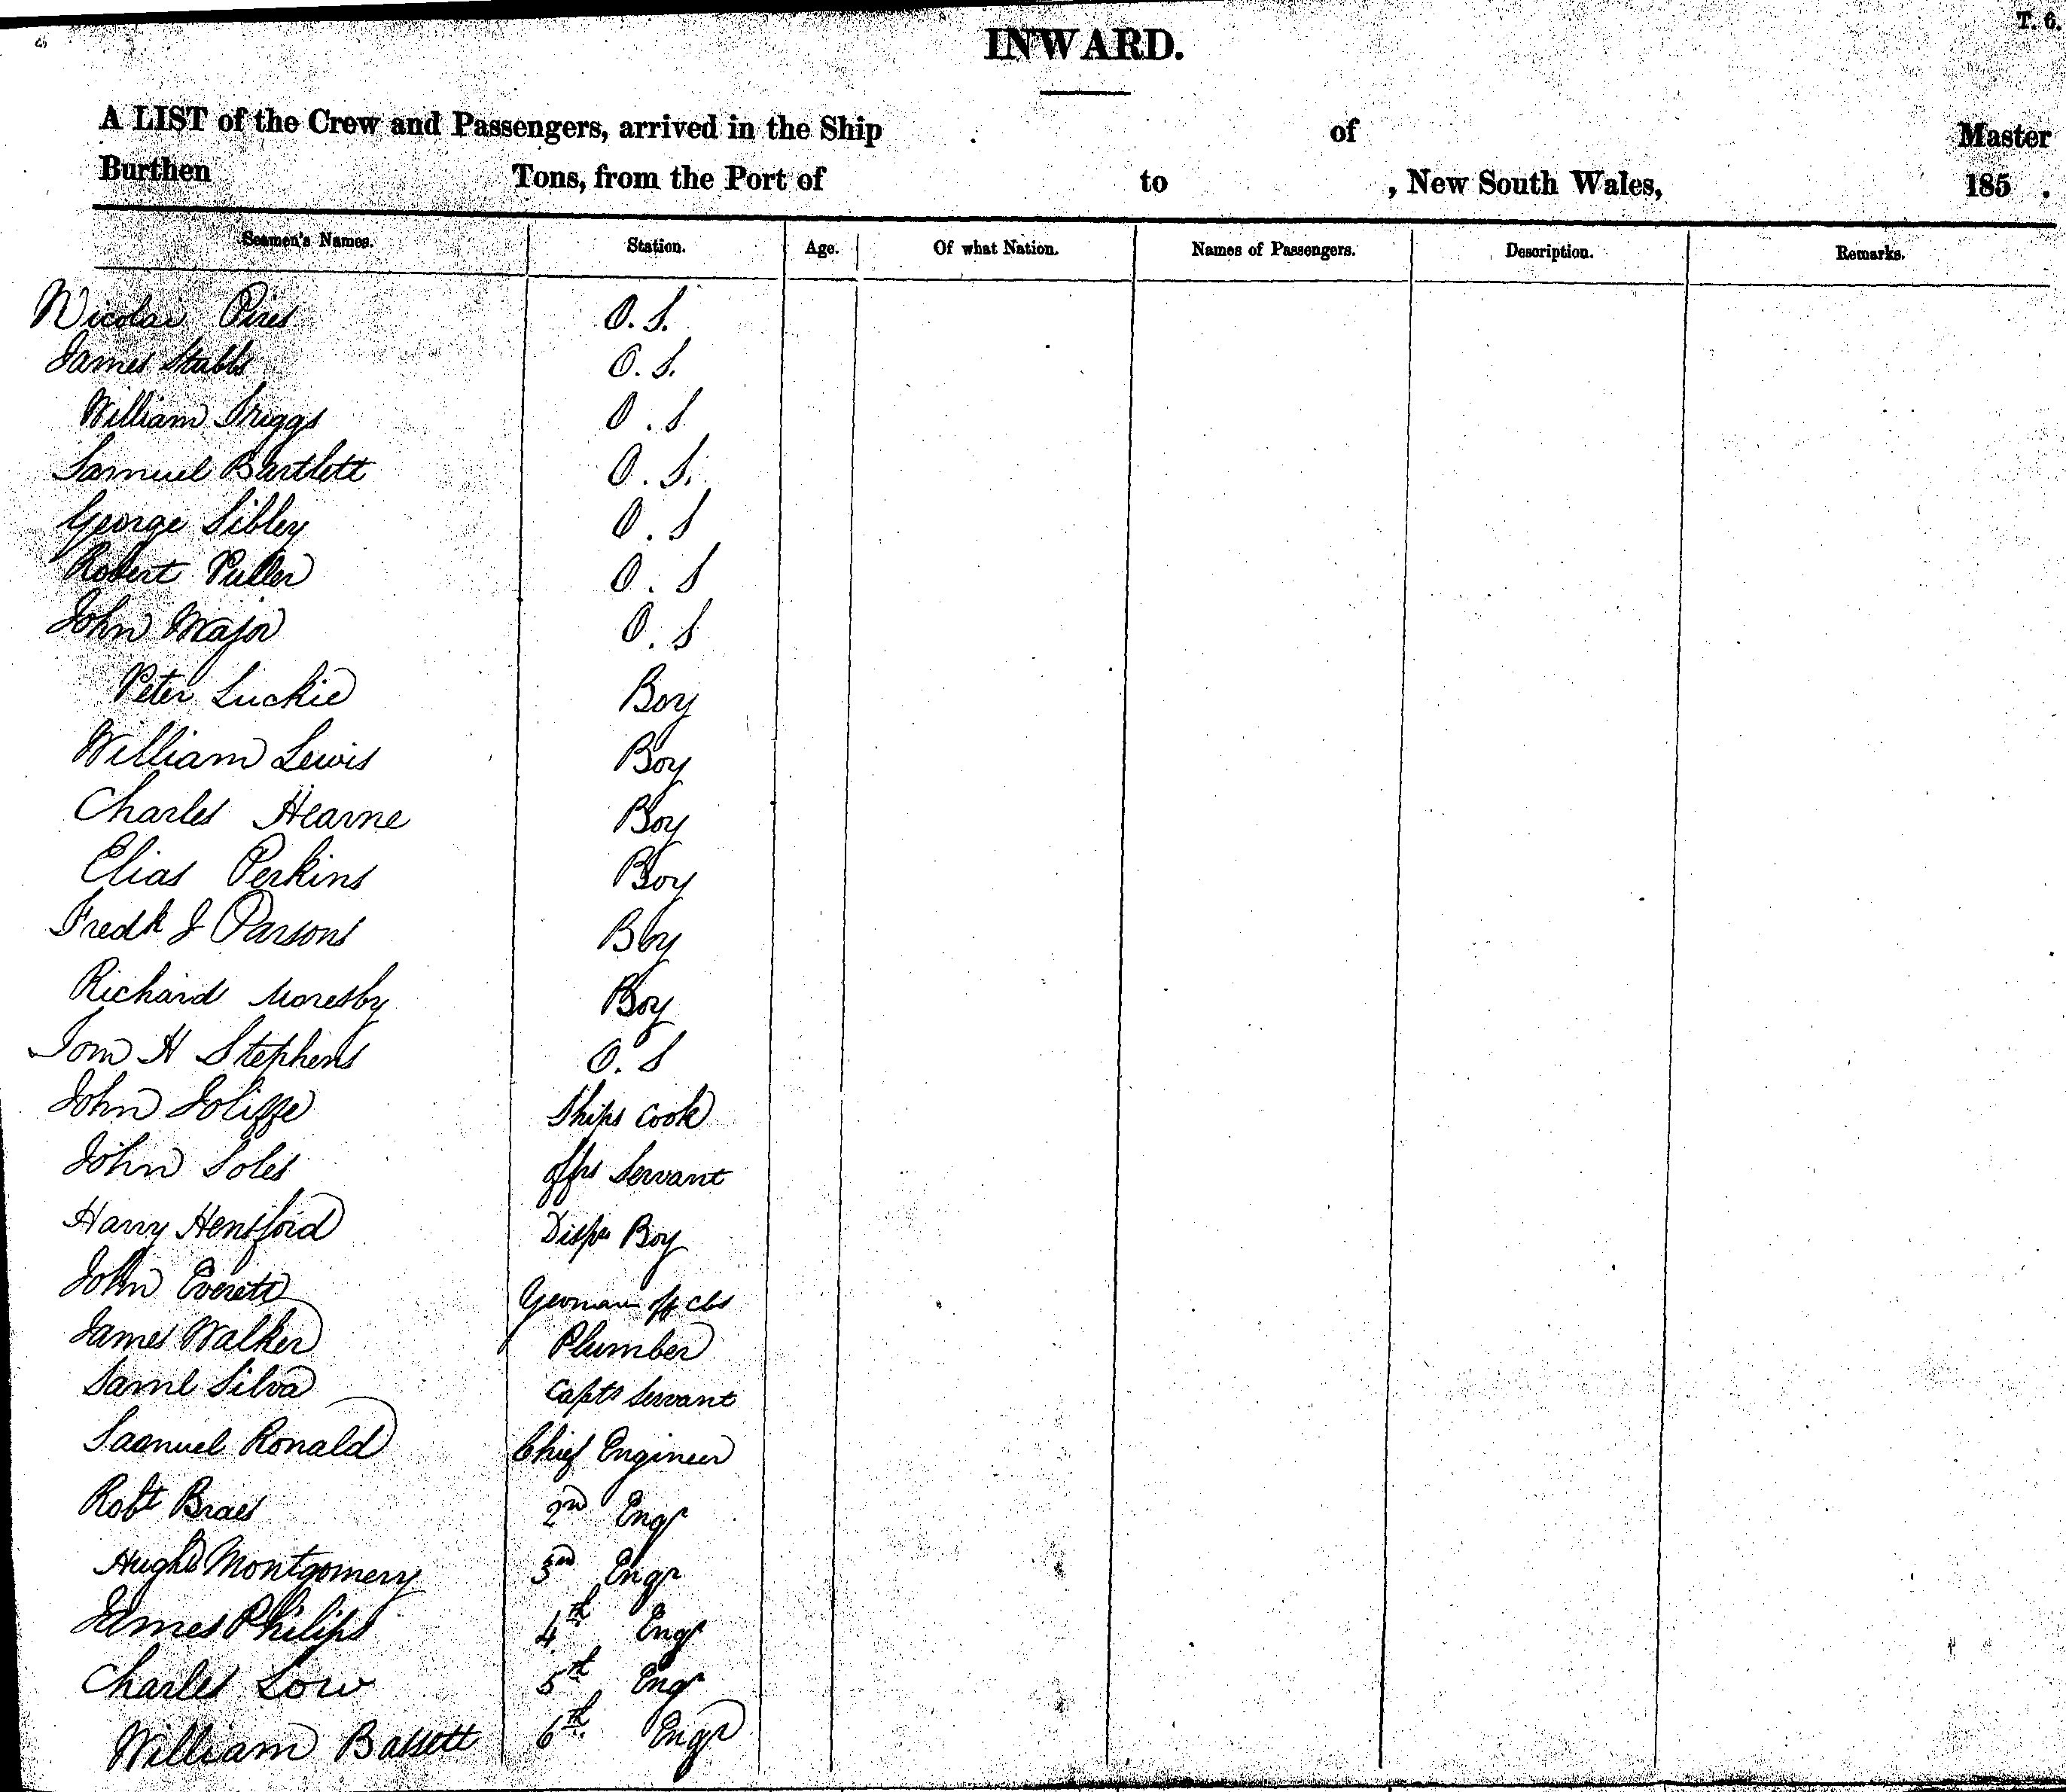 T. 6.
INWARD.
A LIST of the Crew and Passengers, arrived in the Ship . of Master
Burthen Tons, from the Port of to , New South Wales, 185 .
Seamen's Names. Station. Age. Of what Nation. Names of Passengers. Description. Remarks.
Nicolai Pires O. S.
James Stubbs O. S.
William Griggs O. S
Samuel Bartlett O. S.
George Sibley O. S
Robert Puller O. S
John Major O. S
Peter Luckie Boy
William Lewis Boy
Charles Hearne Boy
Elias Perkins Boy
Fredk J Parsons Boy
Richard Moresby Boy
Tom H Stephens O. S
John Joliffe Ships Cook
John Soles offrs Servant
Harry Hensford Boy
John Everett
James Walker Plumber
Saml Silva Capts Servant
Samuel Ronald Chief Engineer
Robt Braes 2nd Engr
Hugh Montgomery 3rd Engr
James Philips 4th Engr
Charles Low 5th Engr
William Bassett 6th Engr